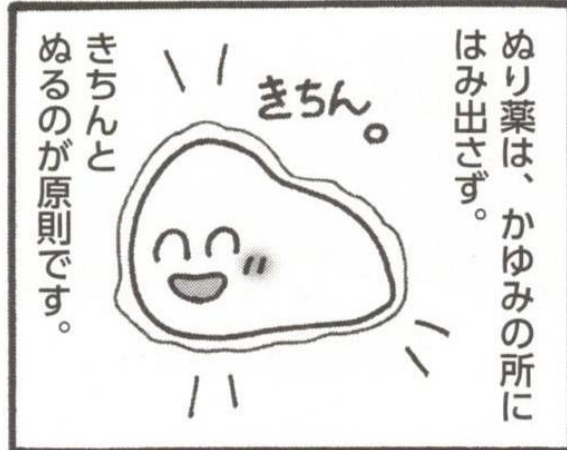 ぬり薬は、かゆみの所に
はみ出さず。
きちん。
きちんと
ぬるのが原則です。